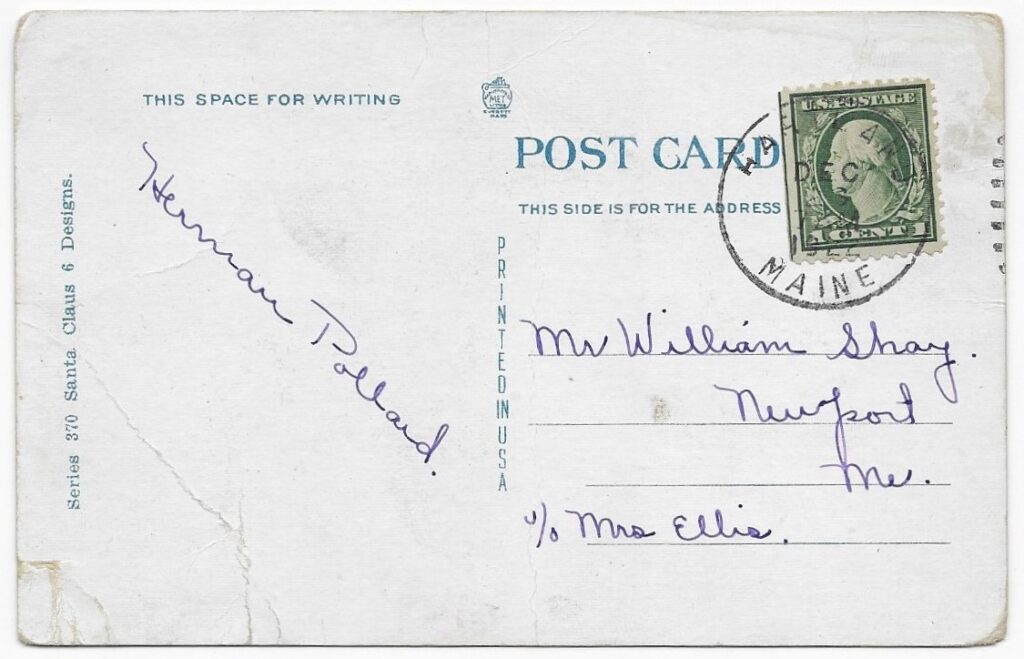 THIS SPACE FOR WRITING
MET
EVERETT
MASS
U.S. POSTAGE
POST CARD
DEC
THIS SIDE IS FOR THE ADDRESS
1 CENT 1
MAINE
Series 370 Santa Claus 6 Designs.
Herman Pollard.
PRINTED IN USA
Mr William Shay.
Newport
Me.
c/o Mrs Ellis.